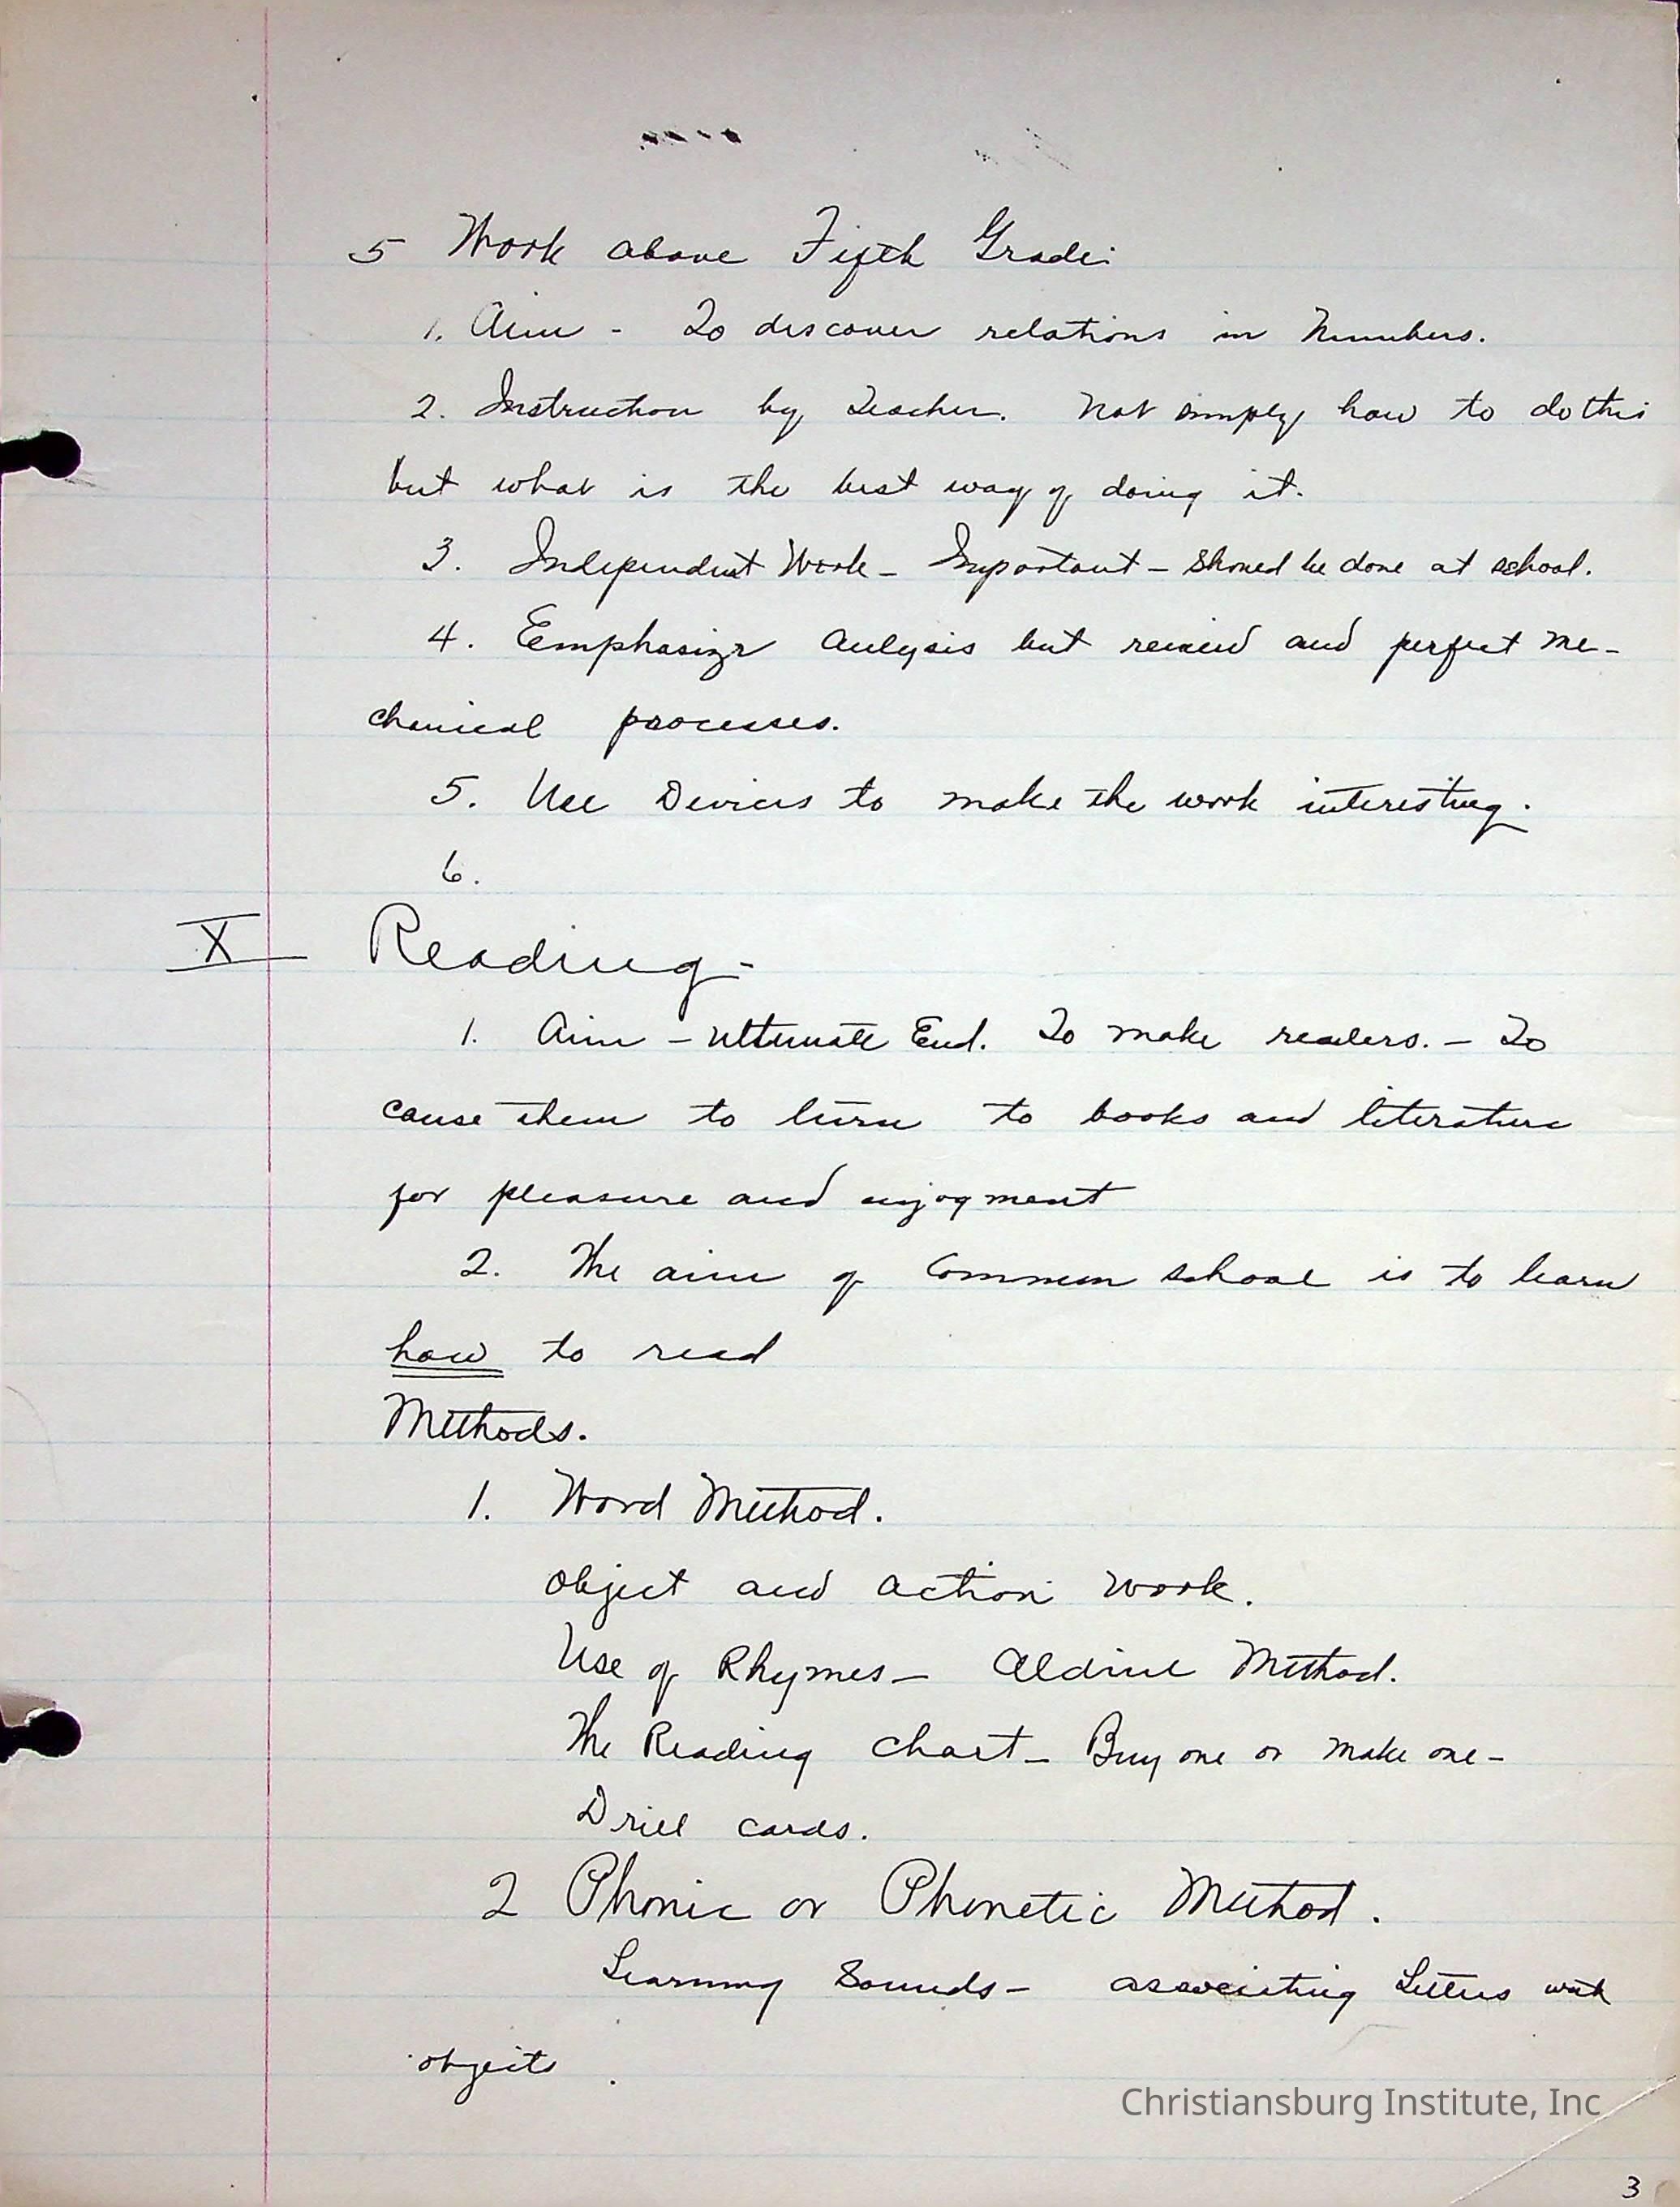 5 Work above Fifth Grade:
1. Aim - To discover relations in Numbers.
2. Instruction by Teacher. Not simply how to do this
but what is the best way of doing it.
3. Independent Work - Important - Should be done at school.
4. Eemphasize Anlysis but review and perfect me-
chanical processes.
5. Use Devices to make the work interesting.
6.
X Reading -
1. Aim - ultimate End. To make readers. - To
cause them to turn to books and literature
for pleasure and enjoyment
2. The aim of Common school is to learn
how to read
Methods.
1. Word Method.
object and action work.
Use of Rhymes - Aldine Method.
The Reading Chart - Buy one or make one -
Drill cards.
2 Phonic or Phonetic Method.
Learning Sounds - associating Letters with
objects.
Christiansburg Institute, Inc
3